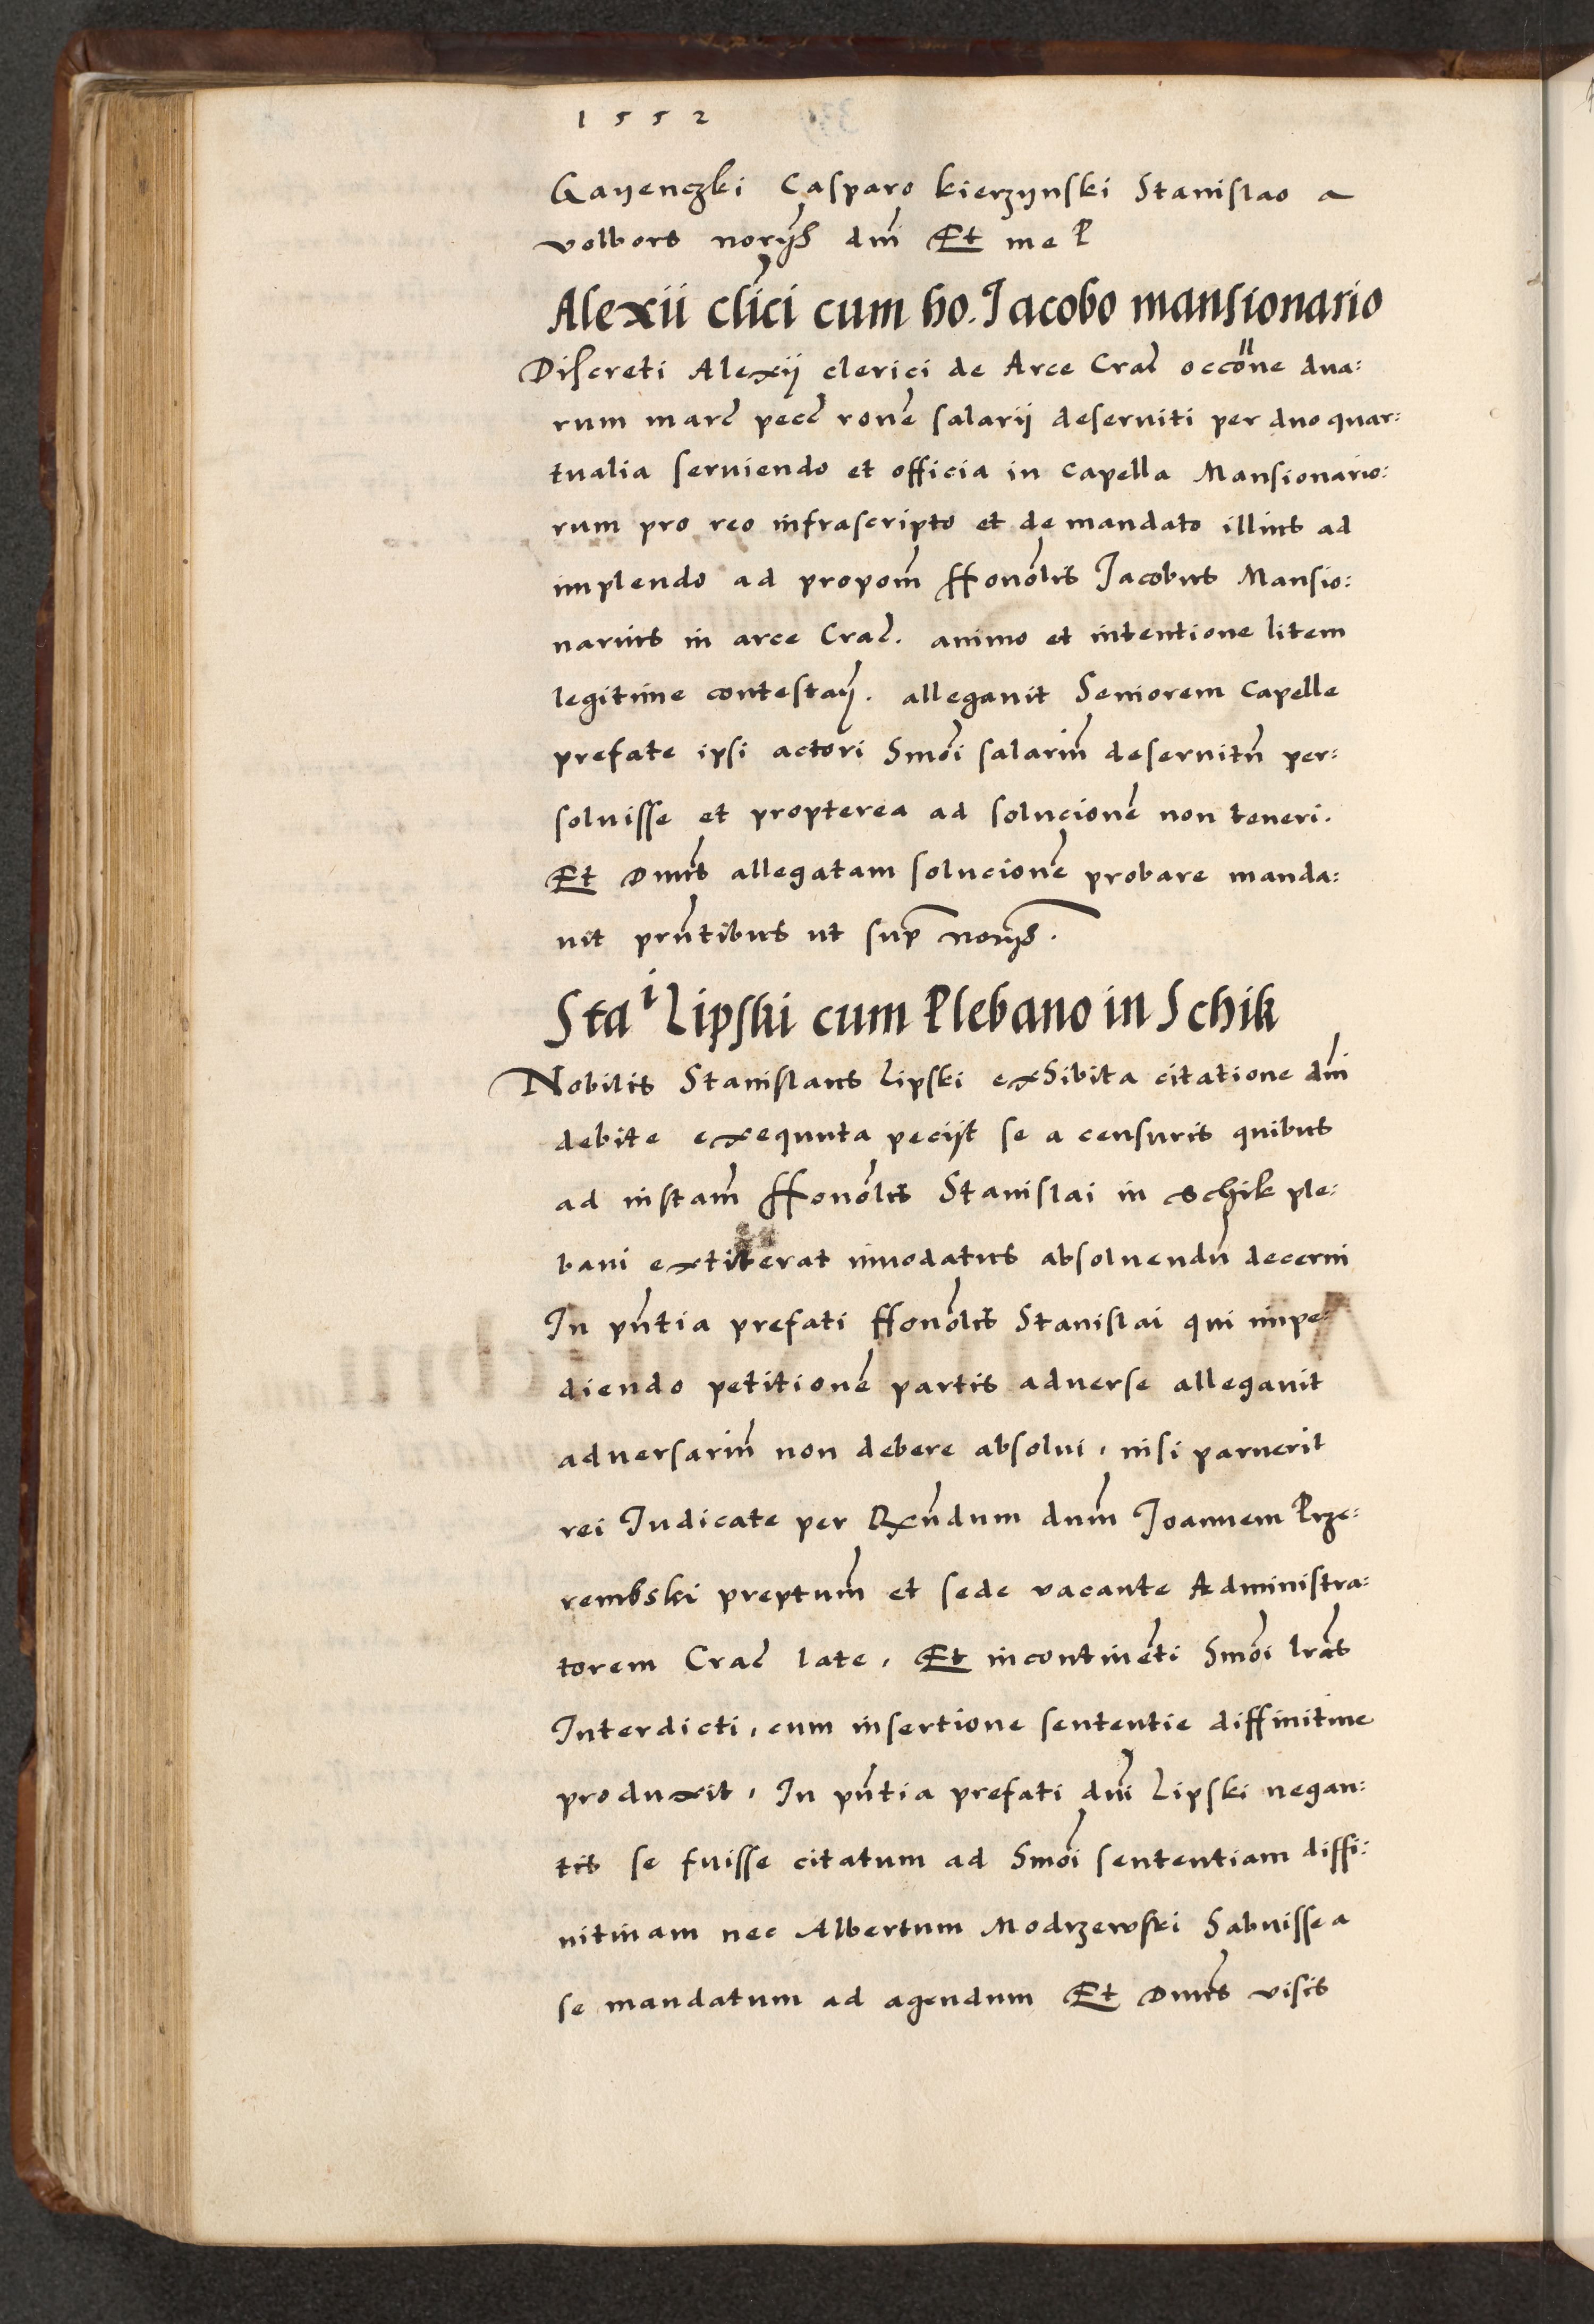 1552
Gayenczki Casparo kierzynski Stanislao a
volbors norijs dni Et me P
Alexii clici cum ho. Jacobo mansionario
Discreti Alexij clerici de Arce Crac occone dua:
rum marc pecc rone salarij deseruiti per duo quar:
tualia seruiendo et officia in capella Mansionario:
rum pro reo infrascripto et de mandato illius ad
implendo ad propom Honolis Jacobus Mansio:
narius in arce Crac. animo et intentione litem
legitime contestan. allegauit Seniorem Capelle
prefate ipsi actori hmoi salarium deseruitu per:
soluisse et propterea ad solucione non teneri.
Et Dnus allegatam solucione probare manda:
uit pntibus ut sup norijs.
Stai Lipski cum Plebano in Schik
Nobilis Stanislaus Lipski exhibita citatione dni
debite exequuta pecijt se a censuris quibus
ad instam Honolis Stanislai in schik ple:
bani extiterat innodatus absoluendu decerni
In pntia prefati Honolis Stanislai qui impe:
diendo petitione partis aduerse allegauit
aduersariu non debere absolui, nisi paruerit
rei Judicate per Rndum dnum Joannem Prze:
rembski preptum et sede vacante Administra:
torem Crac late, Et incontinenti hmoi lras
Interdicti, cum insertione sententie diffinitiue
produxit, In pntia prefati dni Lipski negan:
tis se fuisse citatum ad hmoi sententiam diffi:
nitiuam nec Albertum Modrzewski habuisse a
se mandatum ad agendum Et Dnus visis